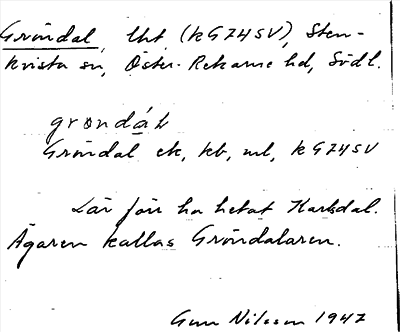 Gröndal, lht (kG74SV), Sten-
kvista sn, Öster-Rekarne hd, Södl.
grøndáL
Gröndal ek, kb, ml, kG74SV
Lär förr ha hetat Karlsdal.
Ägaren kallas Gröndalaren.
Gun Nilsson 1947